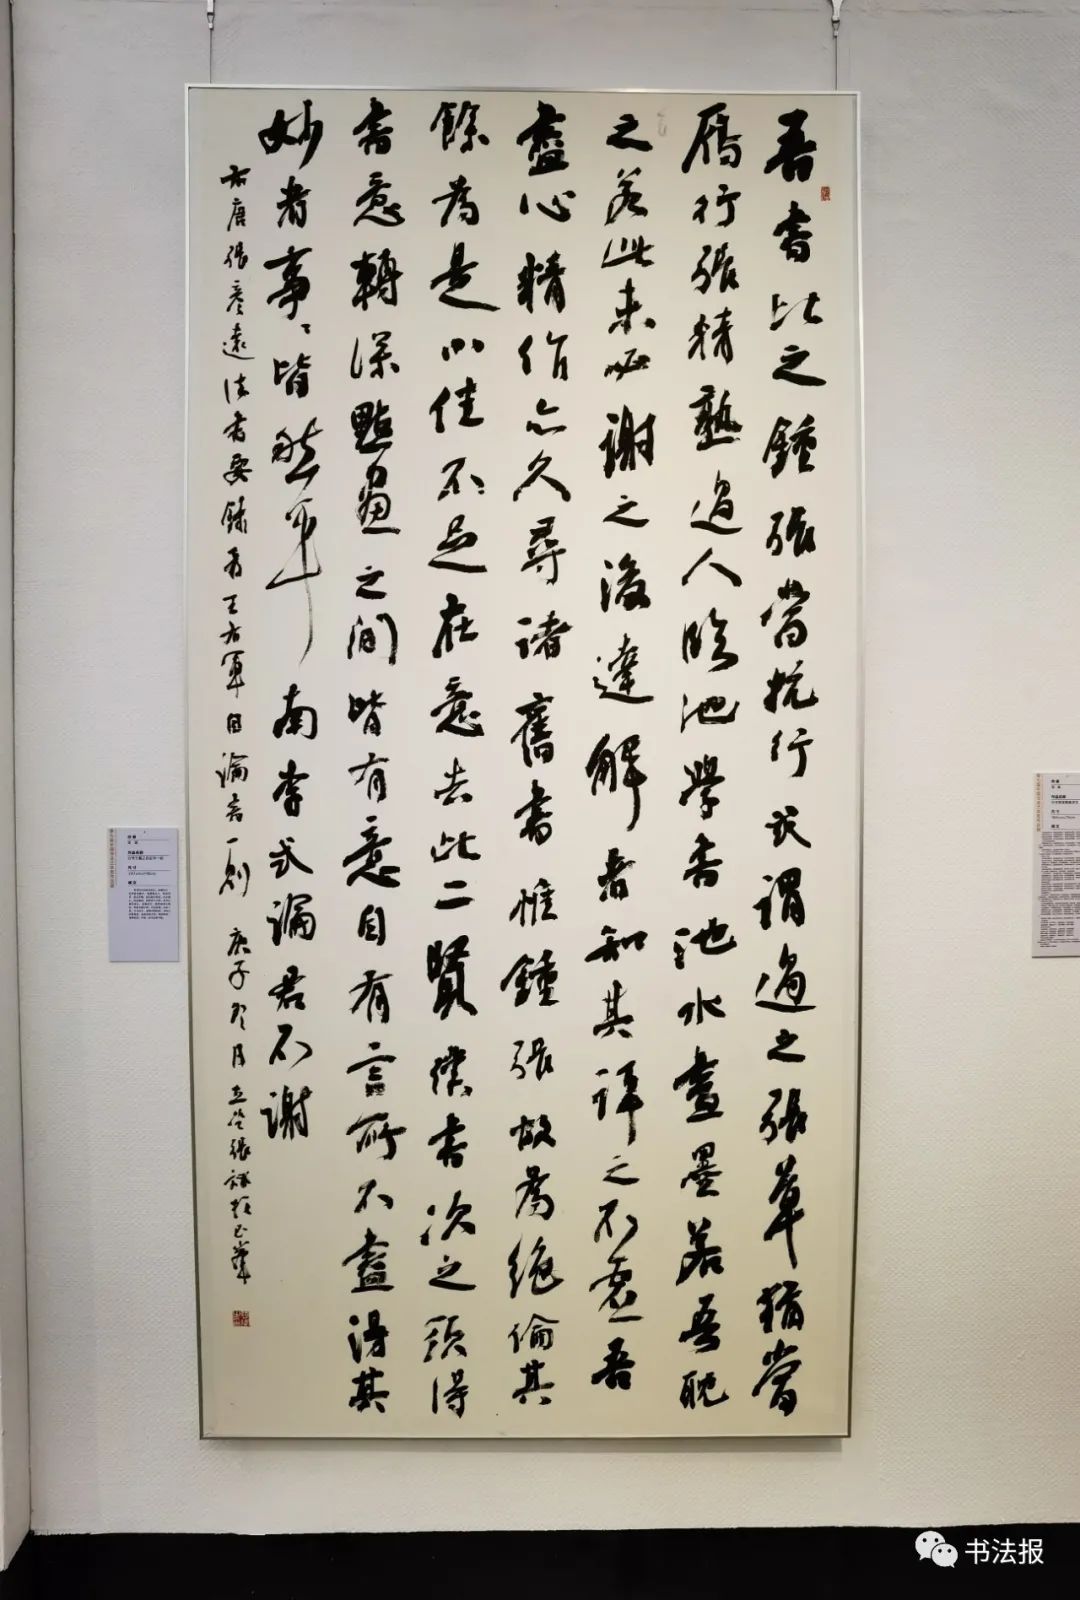 吾書比之鍾張當抗行或謂過之張草猶當
雁行張精熟過人臨池學書池水盡墨若吾耽
之若此未必謝之後達解者知其評之不虛吾
盡心精作亦久尋諸舊書惟鍾張故為絕倫其
餘為是小佳不足在意去此二賢僕書次之須得
書意轉深點畫之間皆有意自有言所不盡得其
妙者事〻皆然平南李式論君不謝
右唐張彥遠法書要錄有王右軍自論書一則 庚子 月
书法报